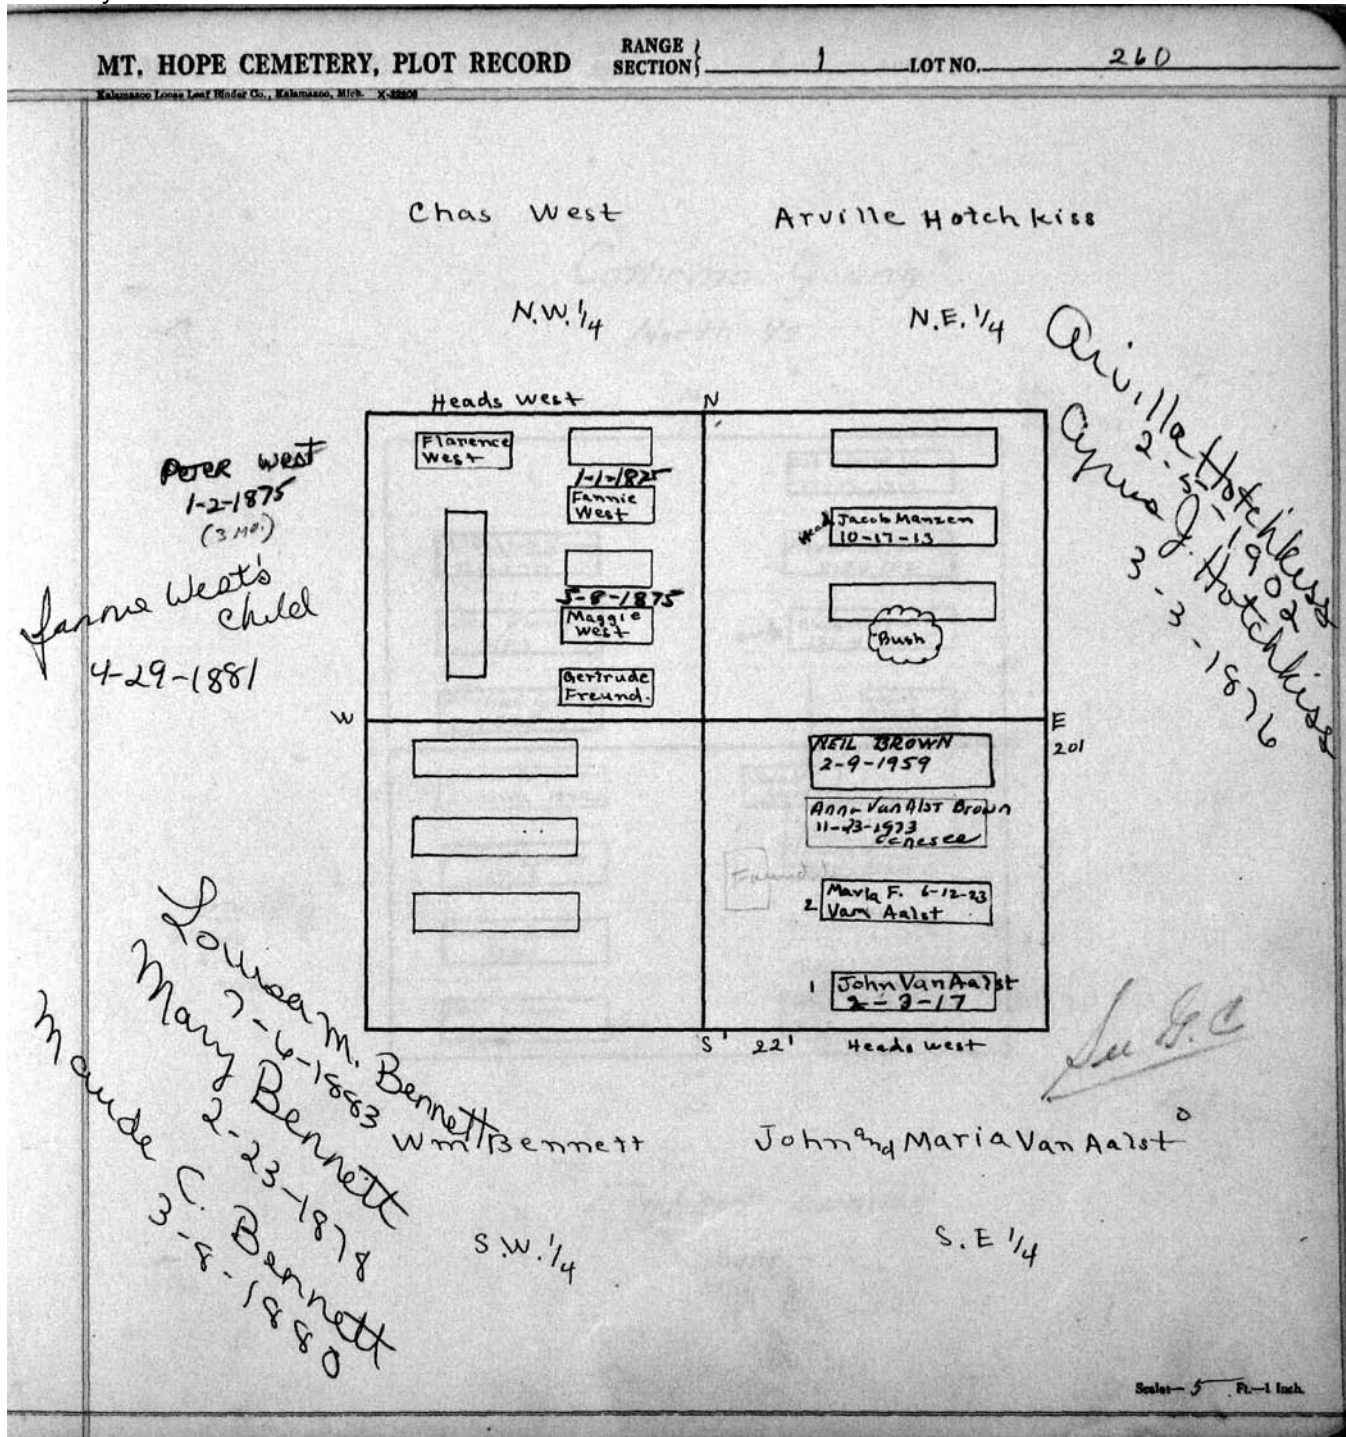 MT. HOPE CEMETERY, PLOT RECORD
RANGE
SECTION 1 LOT NO. 260
Kalamazoo Loose Leaf Binder Co., Kalamazoo, Mich.
Chas West
Arville Hotchkiss
N.W. 1/4
N.E. 1/4
Arvilla Hotchkiss
2-5-1902
Cyrus J. Hotchkiss
3-3-1876
Heads West
N
Peter West
1-2-1875
(3 Mo.)
Fannie West's
Child
4-29-1881
Florence
West
1-1-1875
Fannie
West
5-8-1875
Maggie
West
Gertrude
Freund.
Head
Jacob Manzen
10-17-13
Bush
W
E
201
NEIL BROWN
2-9-1959
Anna VanAlst Brown
11-23-1973
Genesee
Found.
2 Maria F. 6-12-23
Van Aalst
1 John Van Aalst
2-3-17
S 22'
Heads West
See G.C
Louisa M. Bennett
7-6-1883
Mary Bennett
2-23-1878
Maude C. Bennett
3-8-1880
Wm Bennett
John and Maria Van Aalst
S.W. 1/4
S.E 1/4
Scale— 5 Ft.—1 Inch.